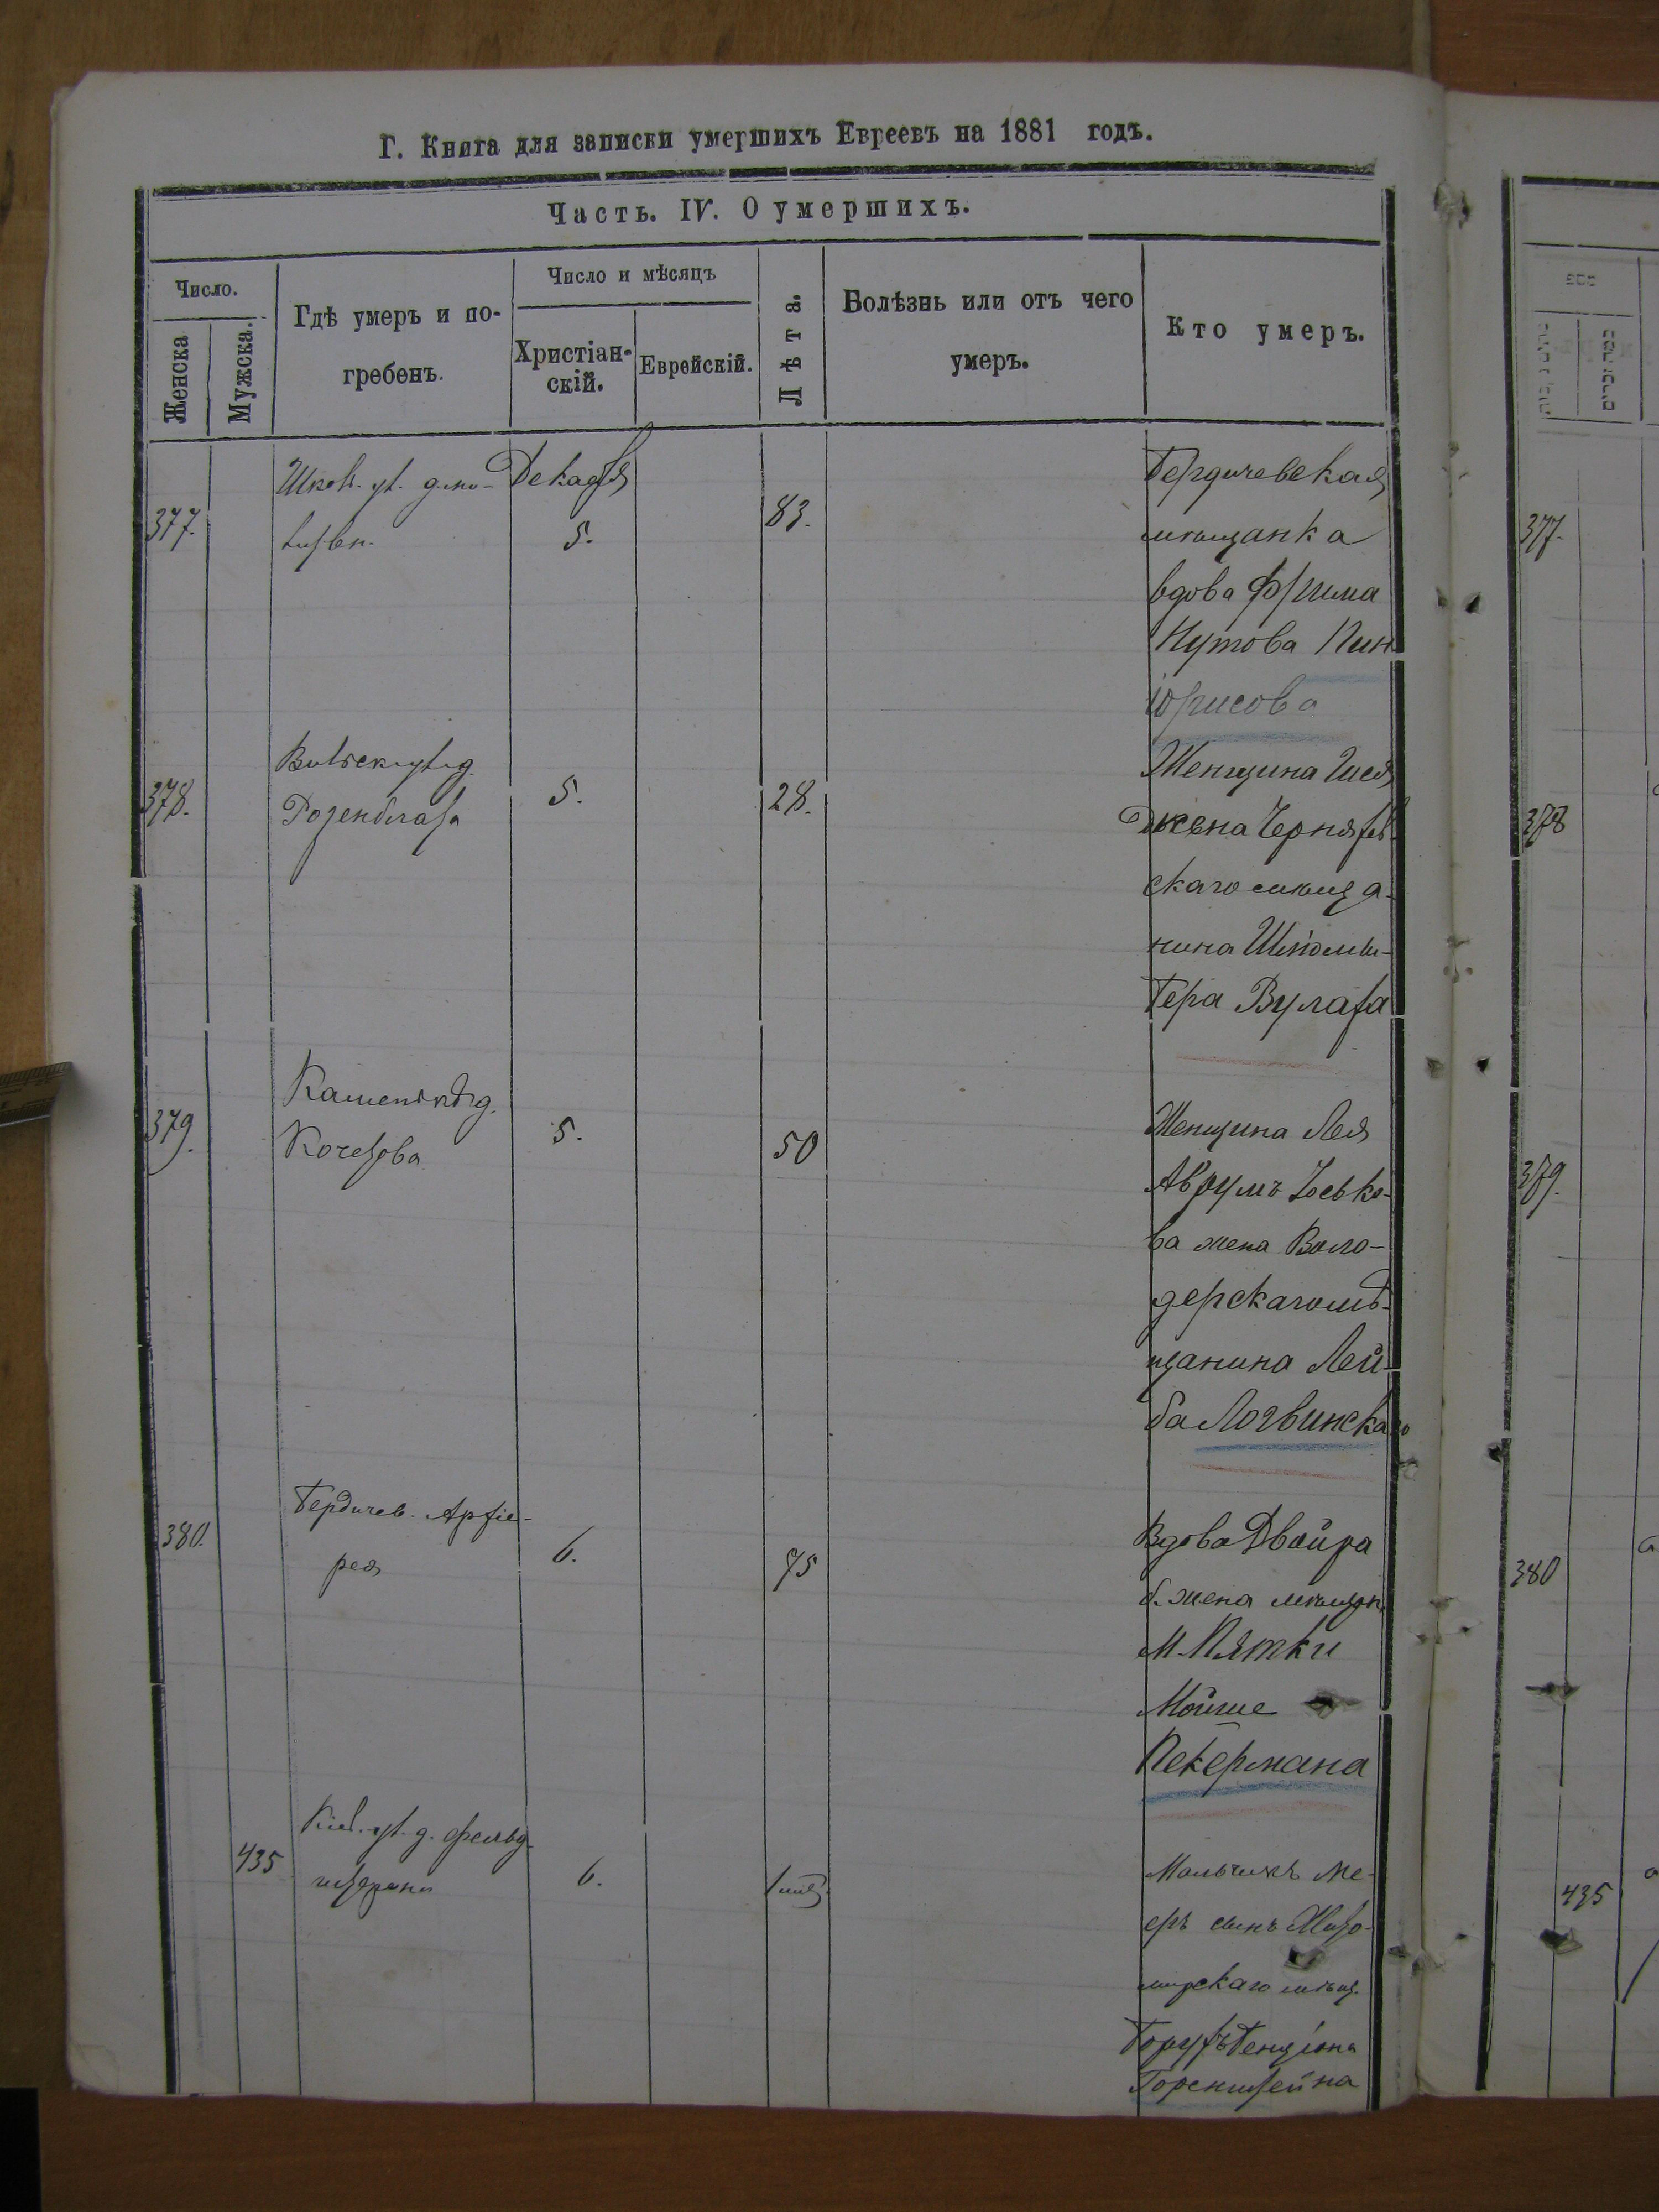 Г. Книга для записки умершихъ Евреевъ на 1881 годъ.
Часть. IV. О умершихъ.
Число.
Женска
Мужска.
Гдѣ умеръ и по-
гребенъ.
Число и мѣсяцъ
Христіан-
скій.
Еврейскій.
Лѣта.
Болѣзнь или отъ чего
умеръ.
Кто умеръ.
377.
Декабря
5.
83.
Бердичевская
мѣщанка
вдова Фрима
Нутова Пин
378.
5.
28.
Женщина
жена
скаго мѣща-
нина
бера
379.
Каменскаго д.
5.
50
Женщина Лея
Аврумъ Іосько-
ва жена Воло-
дерскаго мѣ-
щанина Лей-
ба Логвинскаго
380.
Бердичев. Архіе-
рея
6.
75
Вдова Двойра
б. жена мѣщан.
м. Пятки
Мойше
Пекермана
435
Кіев. ул. д. фельд-
6.
1 мѣс.
Мальчикъ Ме-
еръ сынъ Жито-
мирскаго мѣщ.
Борухъ Бенціона
Горенштейна
377.
378
379.
380
435